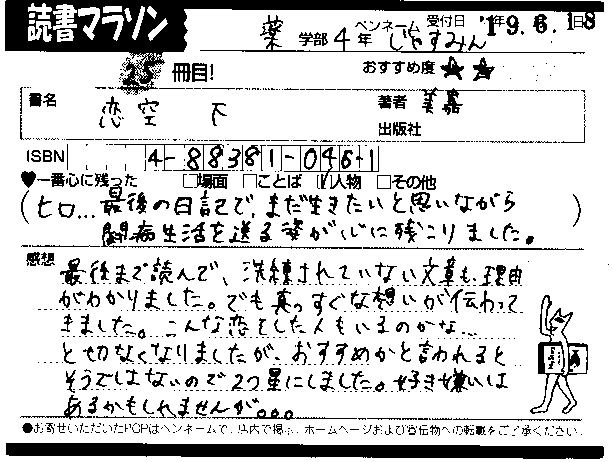 読書マラソン
薬 学部 4 年 ペンネーム じゃすみん 受付日 '19.6.18
25 冊目! おすすめ度 ★ ★
書名 恋空 下 著者 美嘉
出版社
ISBN 4-88381-046-1
♥一番心に残った □場面 □ことば ☑人物 □その他
(ヒロ…最後の日記で、まだ生きたいと思いながら
闘病生活を送る姿が心に残こりました。)
感想
最後まで読んで、洗練されていない文章も理由
がわかりました。でも真っすぐな想いが伝わって
きました。こんな恋をした人もいるのかな…
と切なくなりましたが、おすすめかと言われると
そうではないので2つ星にしました。好き嫌いは
あるかもしれませんが。。。
●お寄せいただいたPOPはペンネームで、店内で掲示、ホームページおよび宣伝物への転載をご了承ください。